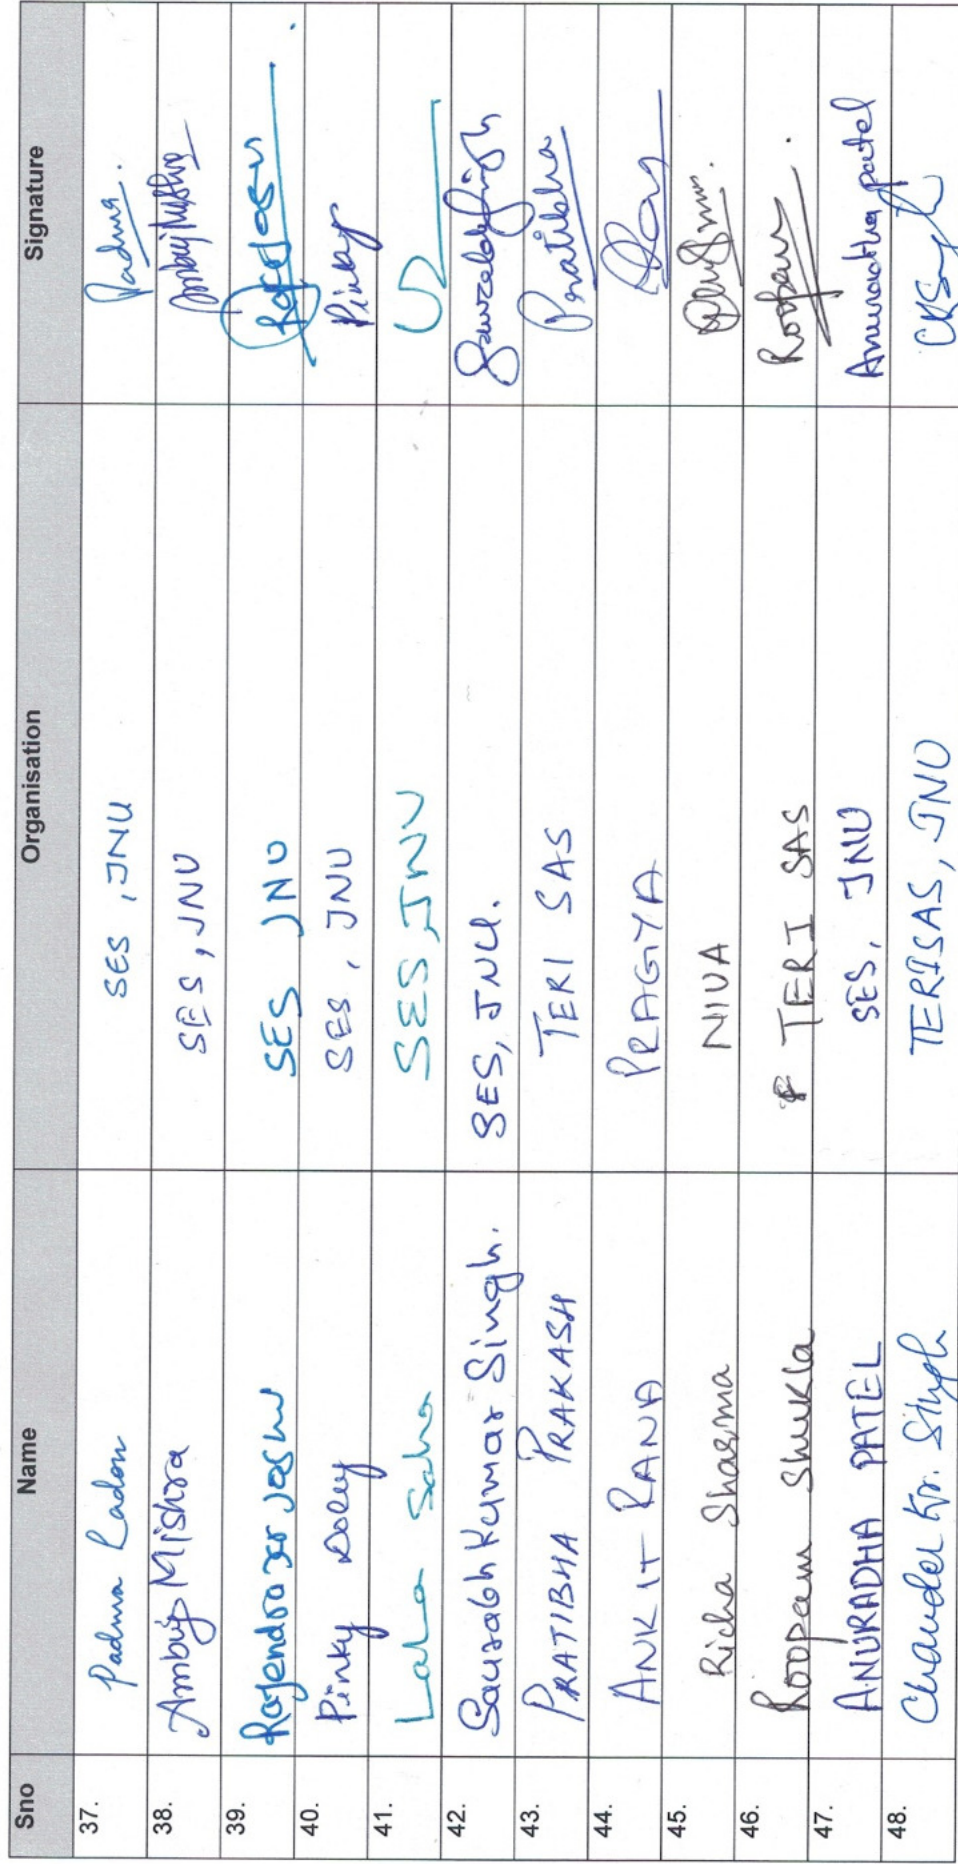 Sno Name Organisation Signature
37. Padma Ladon SES, JNU Padma.
38. Ambuj Mishra SES, JNU Ambuj Mishra
39. Rajendra Kr Joshi SES JNU
40. Pinky Doley SES, JNU Pinky
41. Laha Saha SES, JNU
42. Saurabh Kumar Singh. SES, JNU. Saurabh Singh
43. PRATIBHA PRAKASH TERI SAS Pratibha
44. ANKIT RANA PRAGYA
45. Richa Sharma NIUA
46. Roopam Shukla TERI SAS Roopam
47. ANURADHA PATEL SES, JNU Anuradha patel
48. Chander Kr. Singh TERISAS, JNU CKSingh